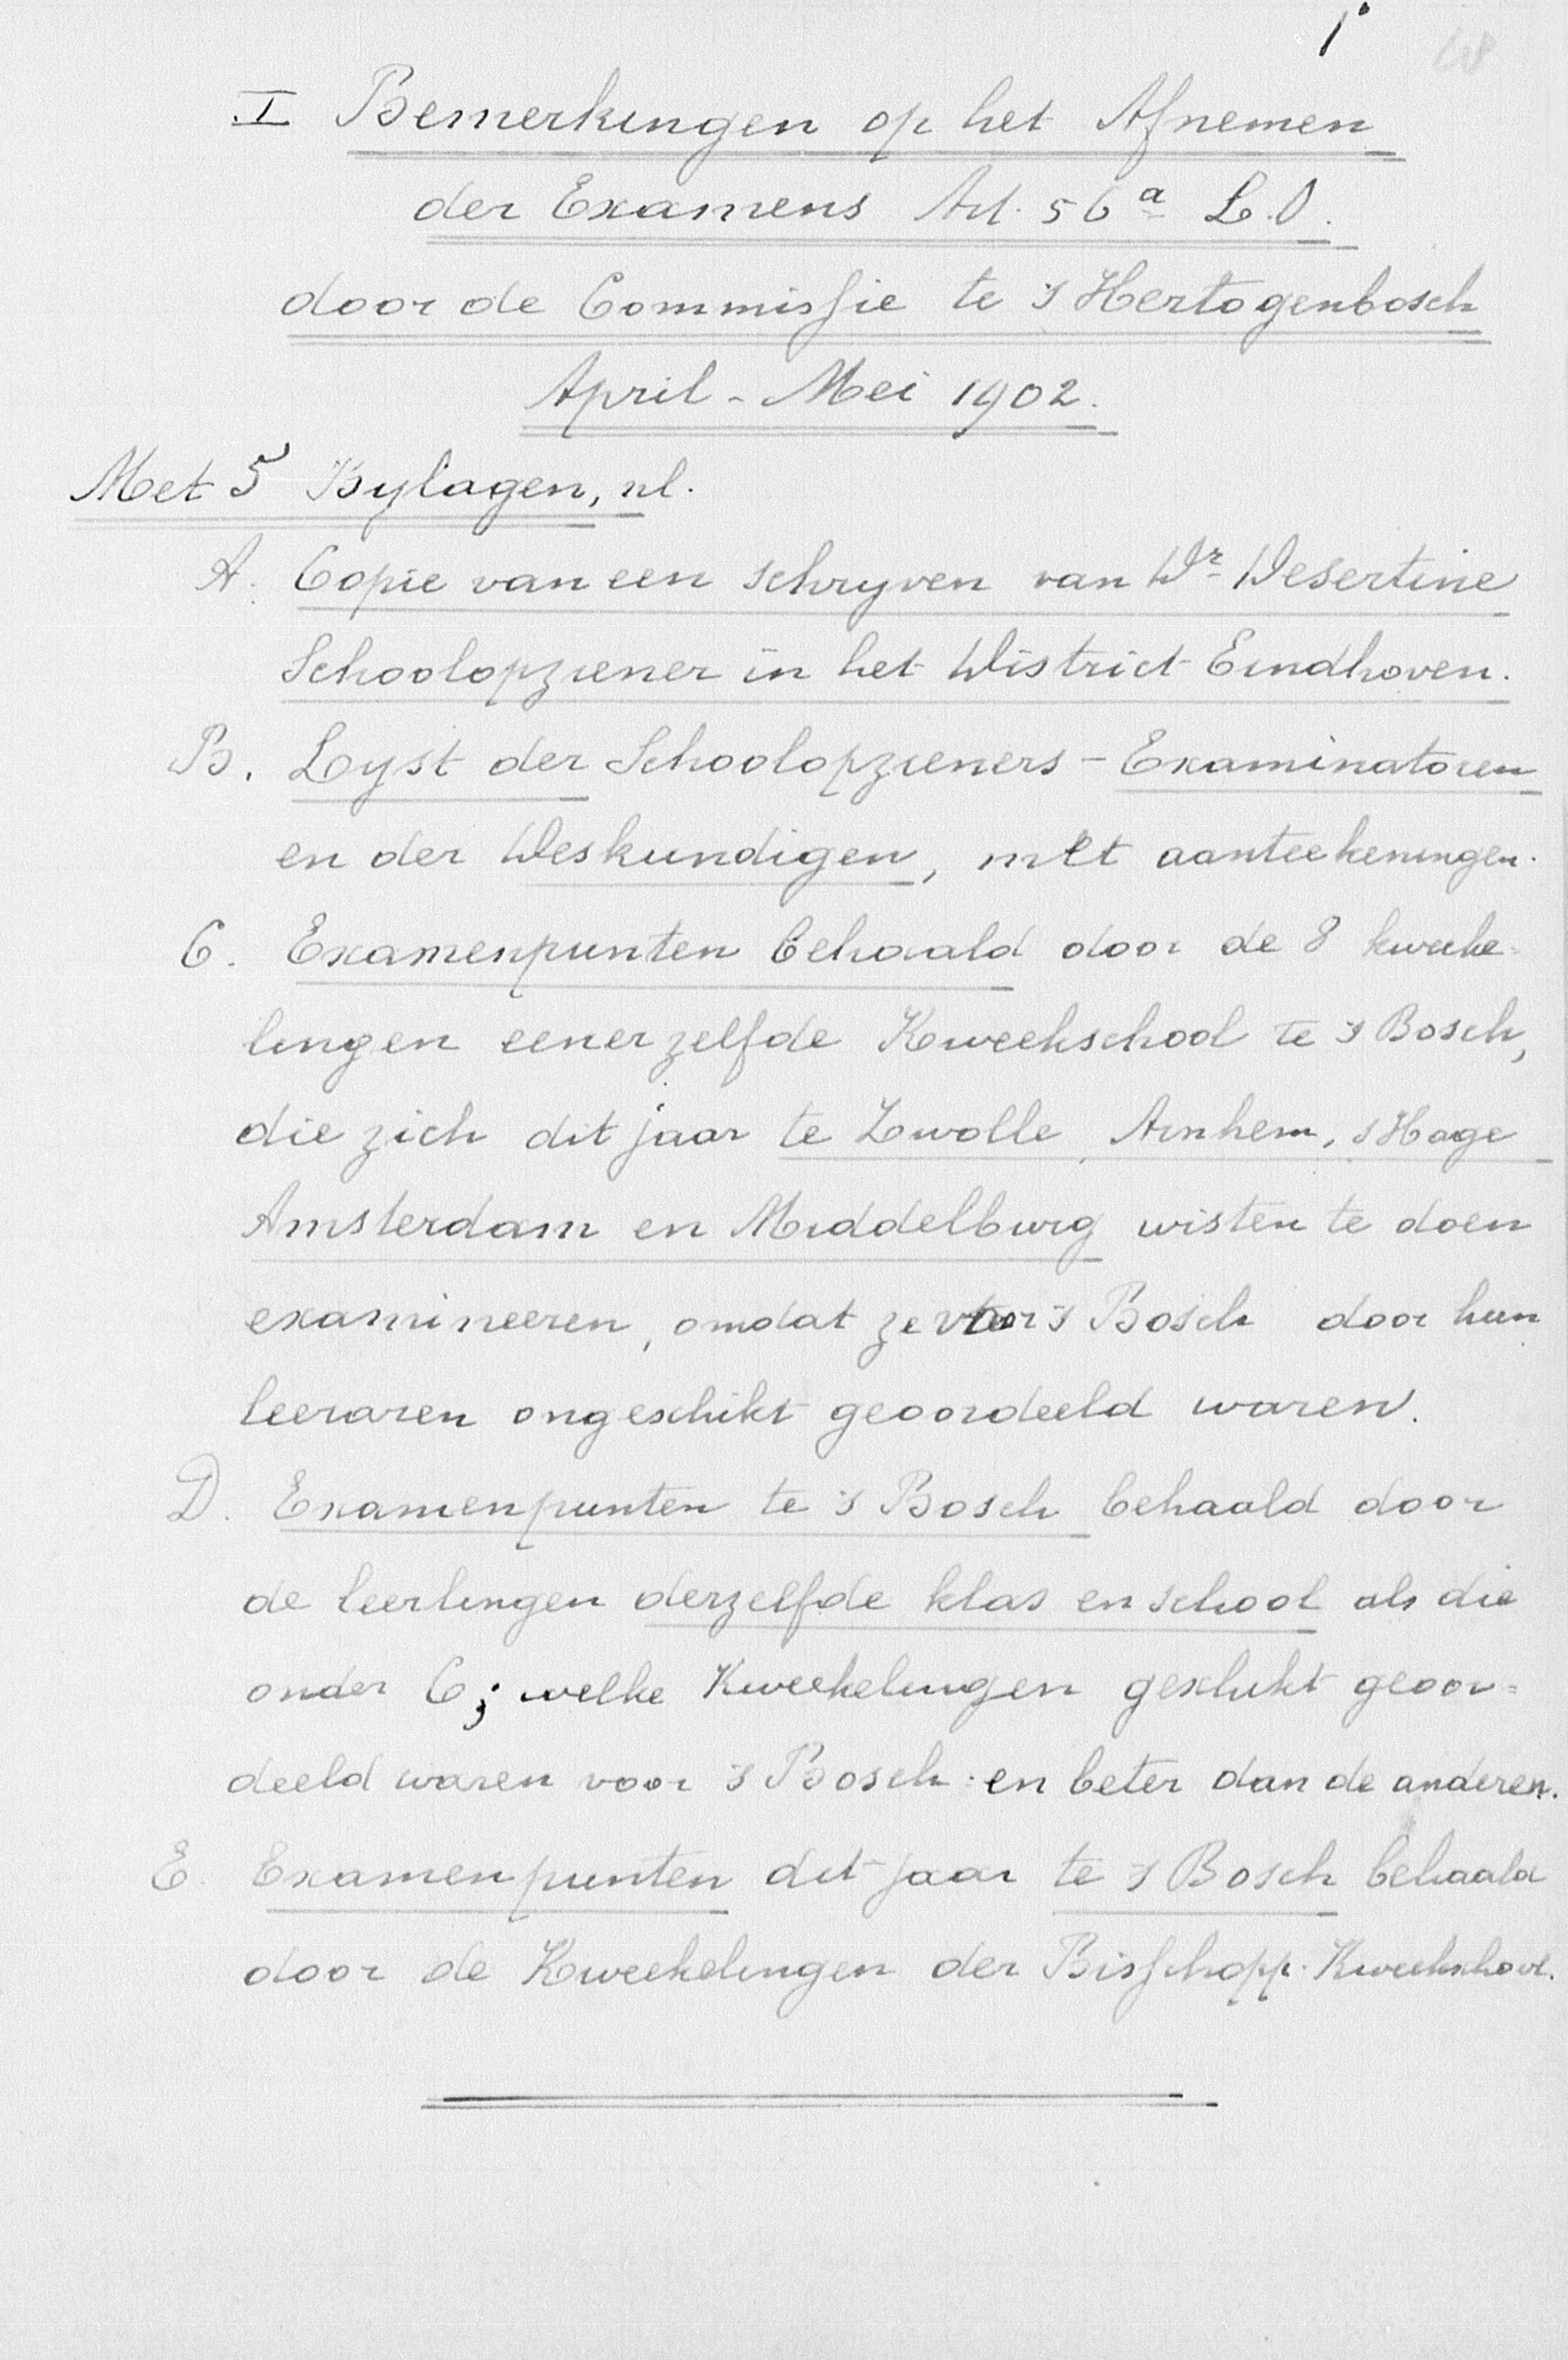 1°
I Bemerkingen op het Afnemen
der Examens Art. 56a L.O.
door de Commissie te 's Hertogenbosch
April - Mei 1902.
Met 5 Bylagen, nl.
A. Copie van een schryven van Dr Desertine
Schoolopziener in het District Eindhoven.
B. Lyst der Schoolopzieners - Examinatoren
en der Deskundigen, met aanteekeningen.
C. Examenpunten behaald door de 8 kweeke=
lingen eener zelfde Kweekschool te 's Bosch,
die zich dit jaar te Zwolle, Arnhem, 's Hage
Amsterdam en Middelburg wisten te doen
examineeren, omdat ze voor 's Bosch door hun
leeraren ongeschikt geoordeeld waren.
D. Examenpunten te 's Bosch behaald door
de leerlingen derzelfde klas en school als die
onder C; welke Kweekelingen geschikt geoor=
deeld waren voor 's Bosch en beter dan de anderen.
E. Examenpunten dit jaar te 's Bosch behaald
door de Kweekelingen der Bisschopp. Kweekschool.